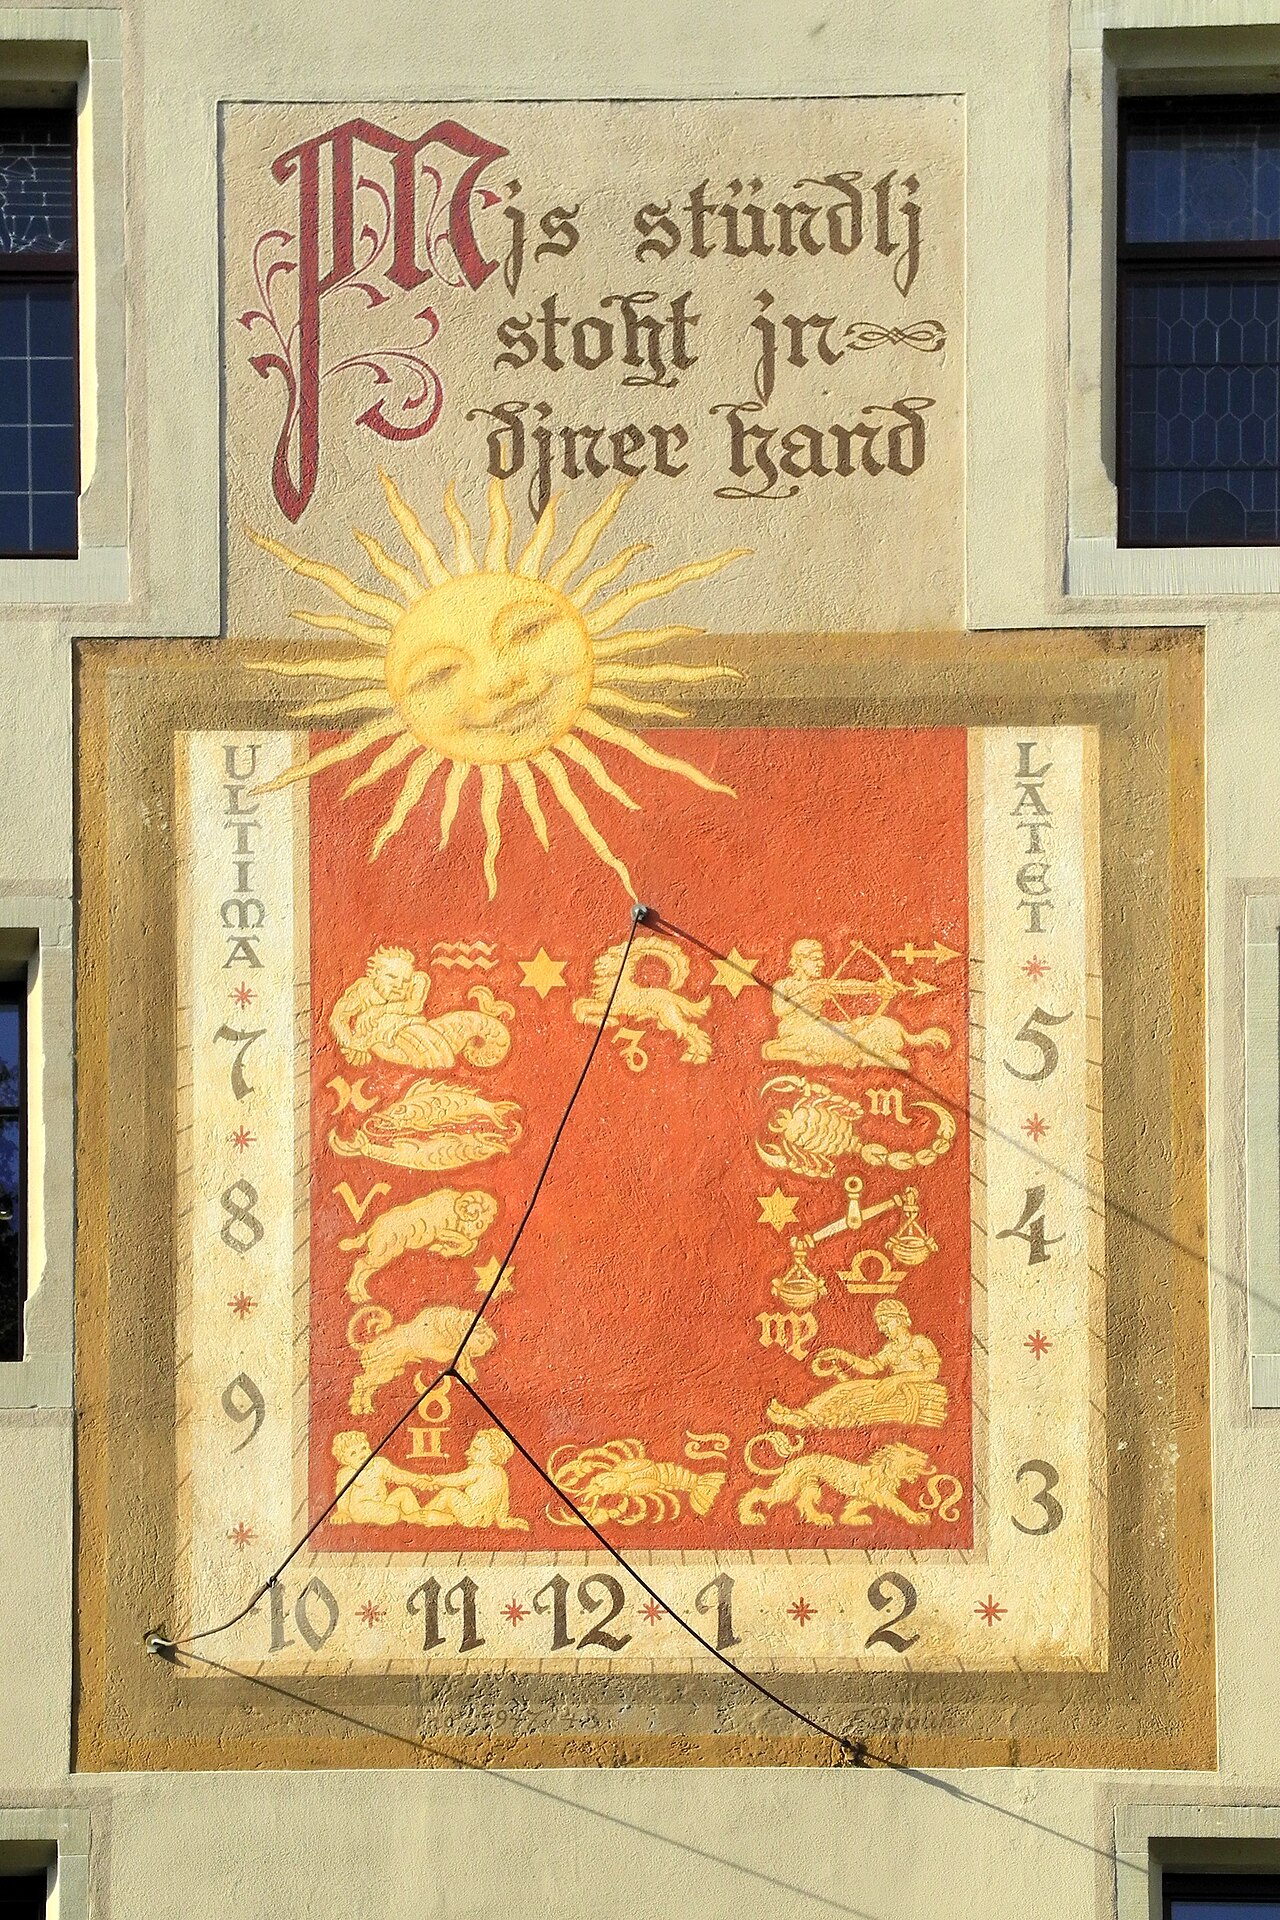 Mjs stündlj
stoht jn
djner hand
ULTIMA
LATET
7
8
9
10 11 12 1 2
3
4
5